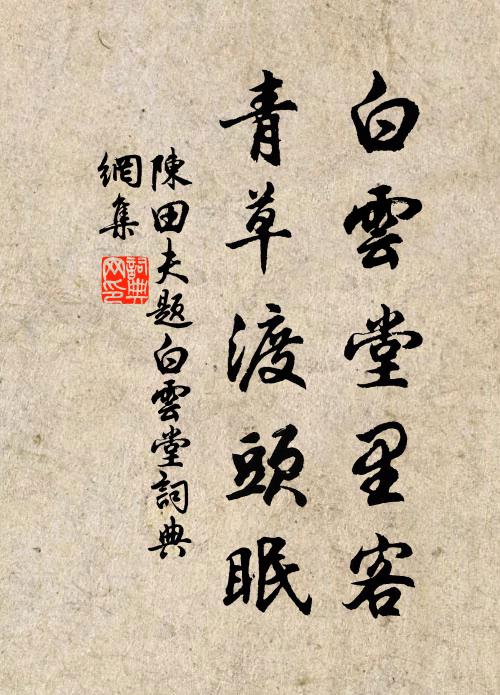 白雲堂里客
青草渡頭眠
陳田夫題白雲堂詞典
網集
詞典
网印